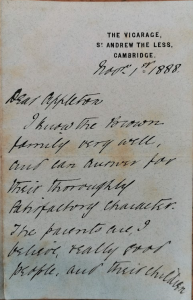 THE VICARAGE,
ST ANDREW THE LESS,
CAMBRIDGE.
Novr. 1st. 1888.
Dear Appleton
I know the Brown
family very well,
and can answer for
their thoroughly
satisfactory character.
The parents are, I
believe, really good
people, and their children